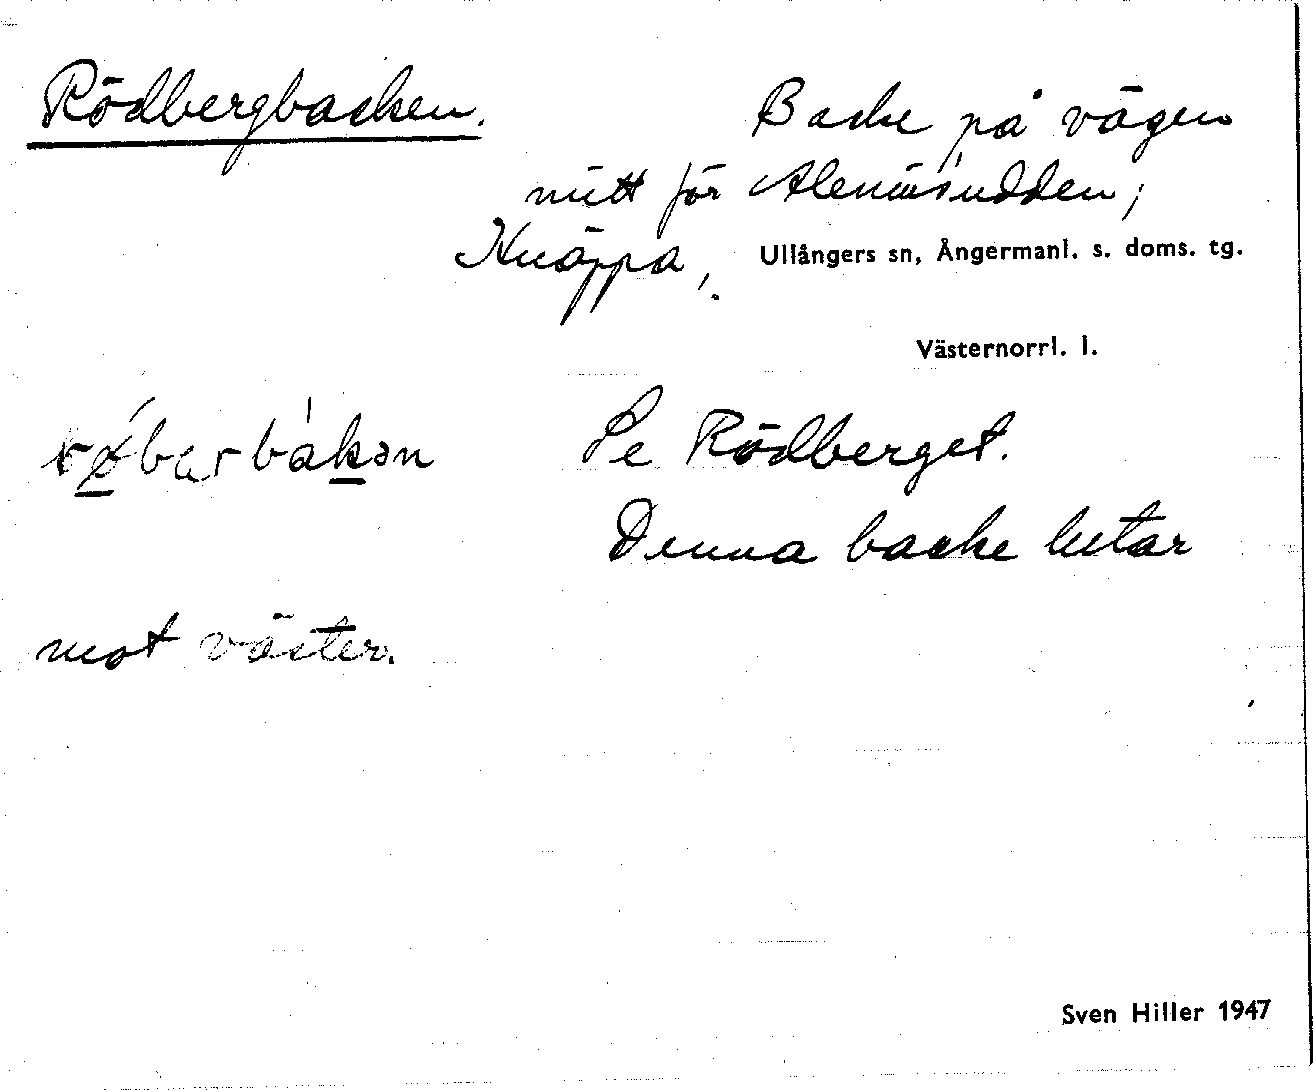 Rödbergbacken. Backe på vägen
mitt för Alenäsudden;
Knäppa, Ullångers sn, Ångermanl. s. doms. tg.
Västernorrl. l.
Se Rödberget.
Denna backe lutar
mot väster.
Sven Hiller 1947